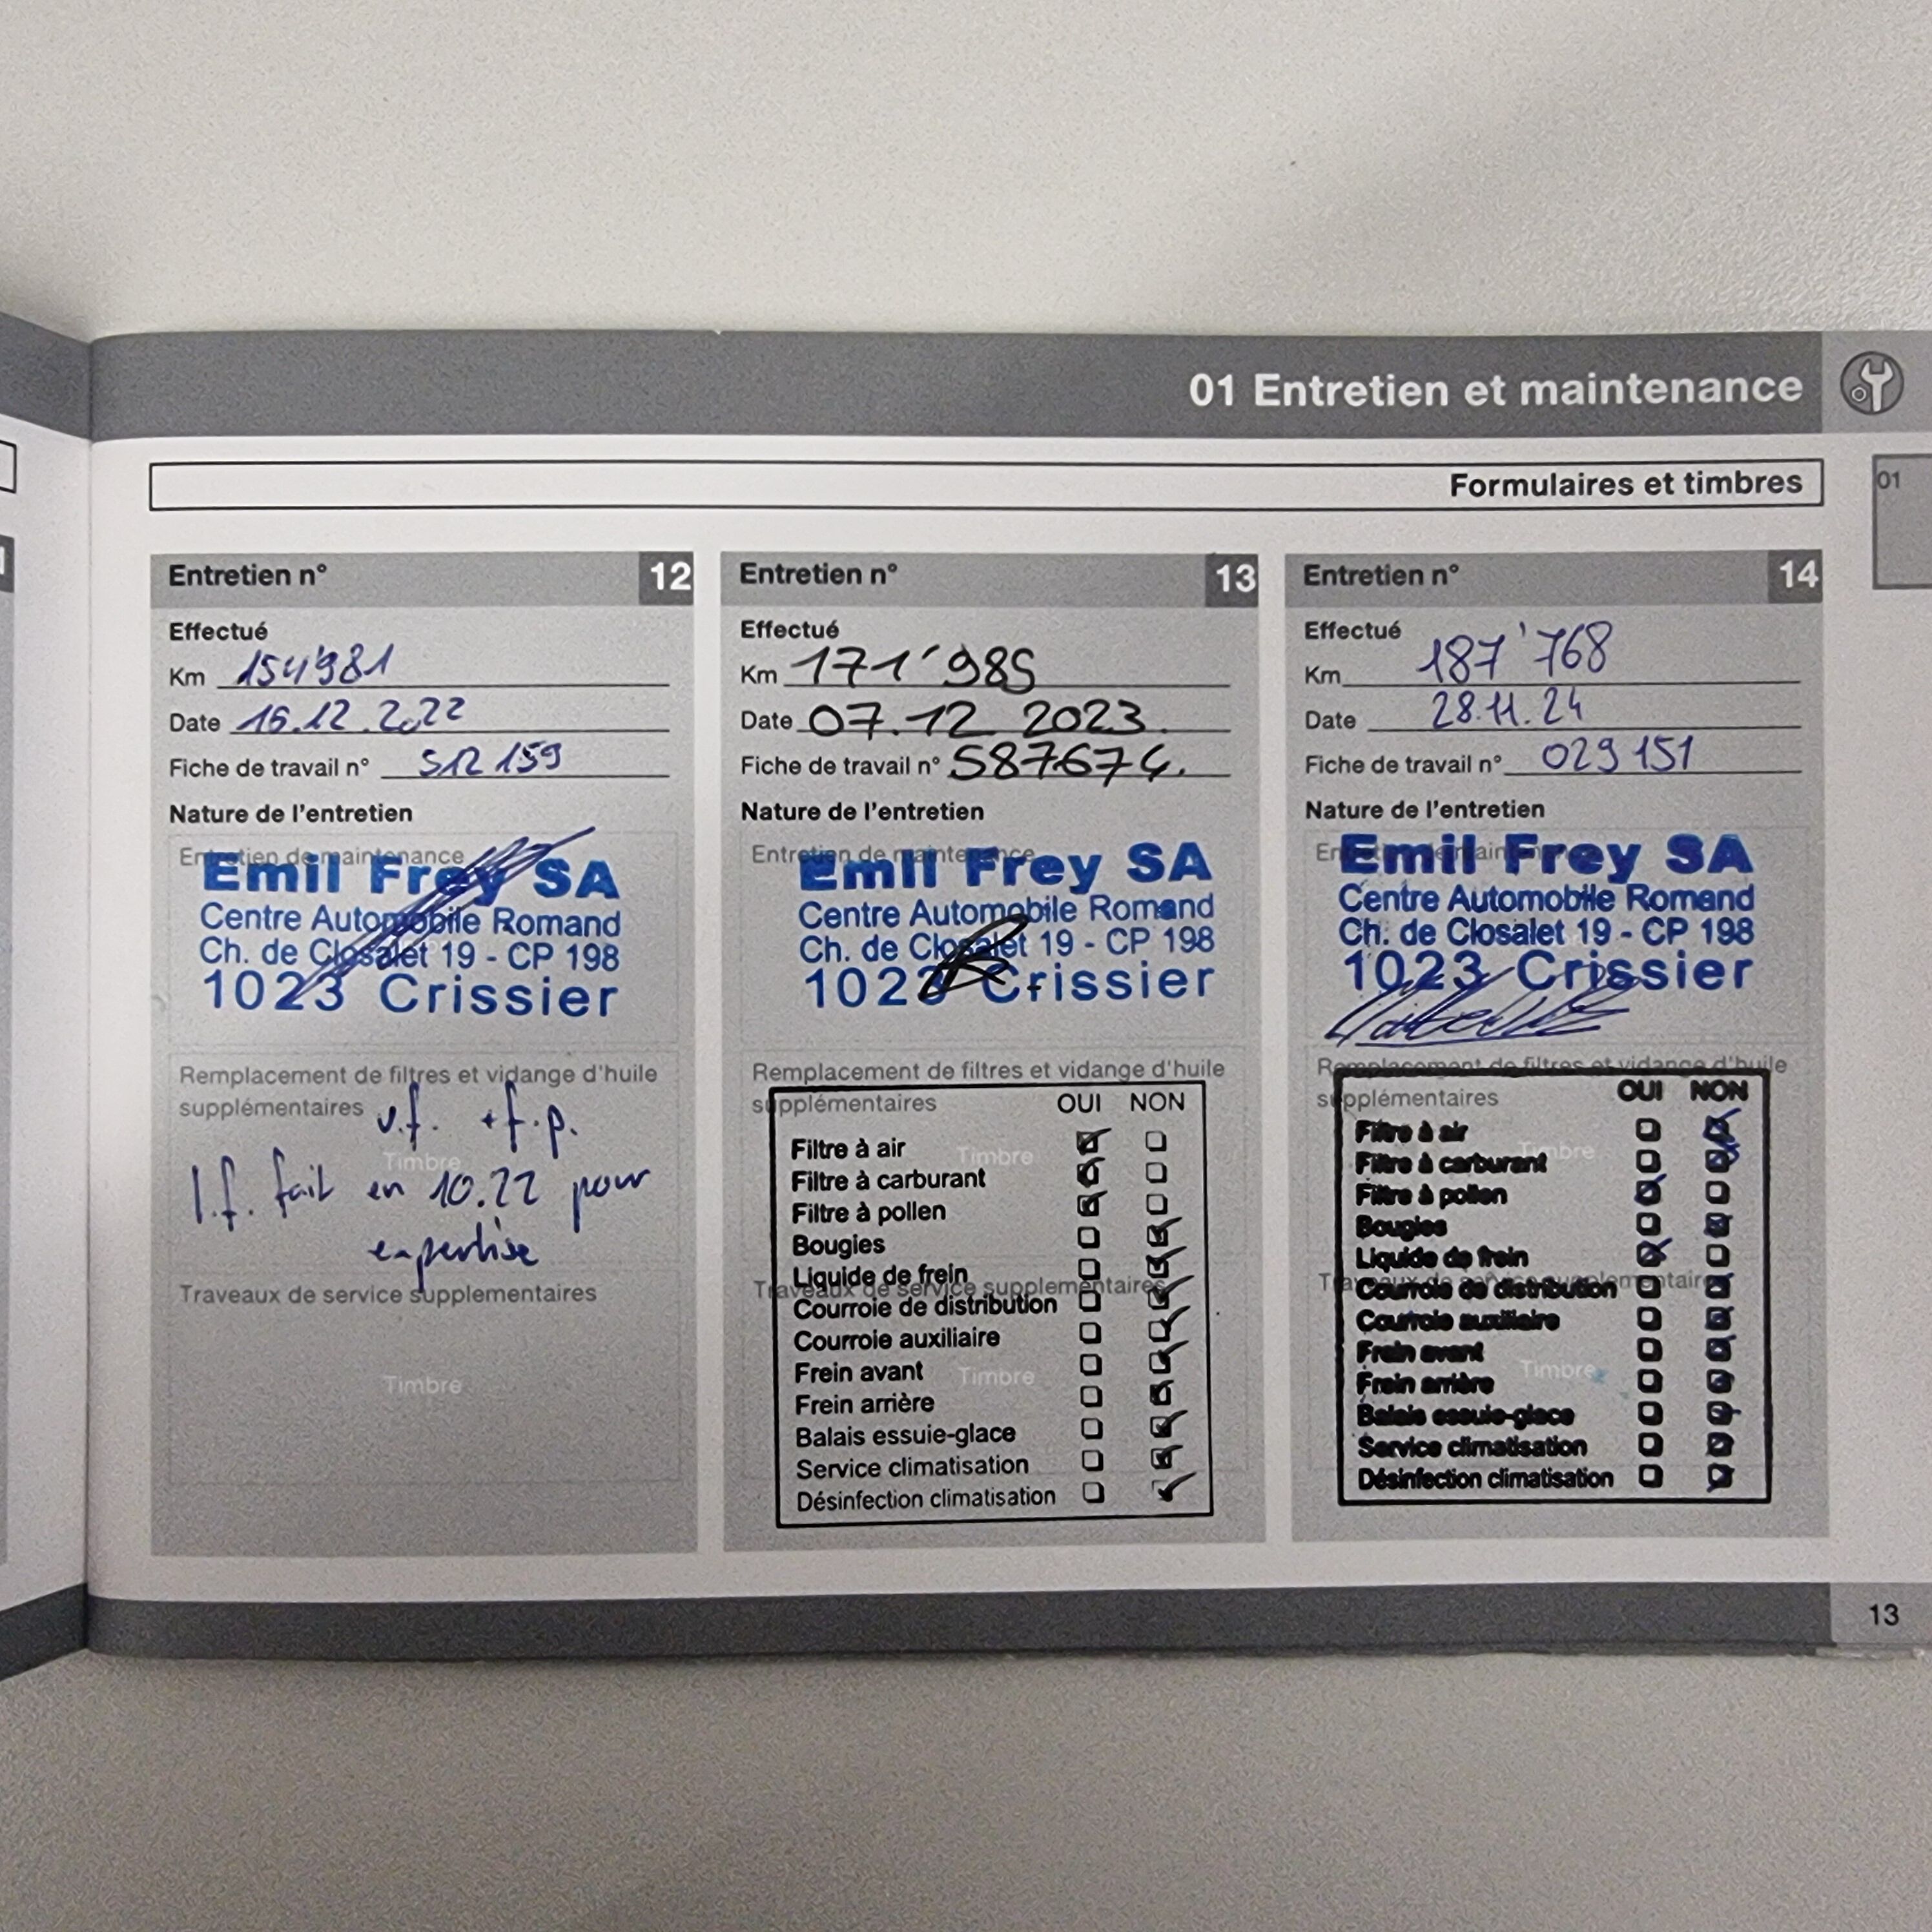 01 Entretien et maintenance
Formulaires et timbres
01
Entretien n° 12
Effectué
Km 154'981
Date 16.12.2022
Fiche de travail n° 512 159
Nature de l'entretien
Entretien de maintenance
Emil Frey SA
Centre Automobile Romand
Ch. de Closalet 19 - CP 198
1023 Crissier
Remplacement de filtres et vidange d'huile
supplémentaires
v.f. + f.p.
Timbre
l.f. fait en 10.22 pour
expertise
Traveaux de service supplementaires
Timbre
Entretien n° 13
Effectué
Km 171'985
Date 07.12 2023.
Fiche de travail n° 587674.
Nature de l'entretien
Entretien de maintenance
Emil Frey SA
Centre Automobile Romand
Ch. de Closalet 19 - CP 198
1023 Crissier
Remplacement de filtres et vidange d'huile
supplémentaires
OUI NON
Filtre à air
Timbre
Filtre à carburant
Filtre à pollen
Bougies
Liquide de frein
Traveaux de service supplementaires
Courroie de distribution
Courroie auxiliaire
Frein avant
Timbre
Frein arrière
Balais essuie-glace
Service climatisation
Désinfection climatisation
Entretien n° 14
Effectué
Km 187'768
Date 28.11.24
Fiche de travail n° 029 151
Nature de l'entretien
Entretien de maintenance
Emil Frey SA
Centre Automobile Romand
Ch. de Closalet 19 - CP 198
1023 Crissier
Remplacement de filtres et vidange d'huile
supplémentaires
OUI NON
Filtre à air
Timbre
Filtre à carburant
Filtre à pollen
Bougies
Liquide de frein
Traveaux de service supplementaires
Courroie de distribution
Courroie auxiliaire
Frein avant
Timbre
Frein arrière
Balais essuie-glace
Service climatisation
Désinfection climatisation
13